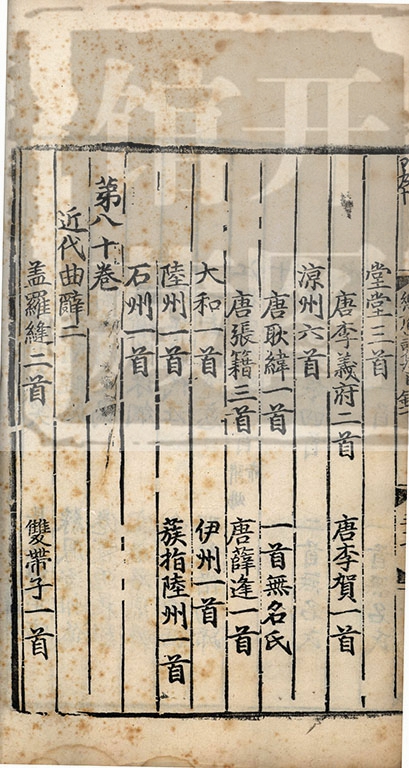 堂堂三首
唐李義府二首　唐李賀一首
涼州六首
唐耿緯一首　一首無名氏
唐張籍三首　唐薛逢一首
大和一首　伊州一首
陸州一首　蔟拍陸州一首
石州一首
第八十卷
近代曲辭二
盖羅縫二首　雙帶子一首